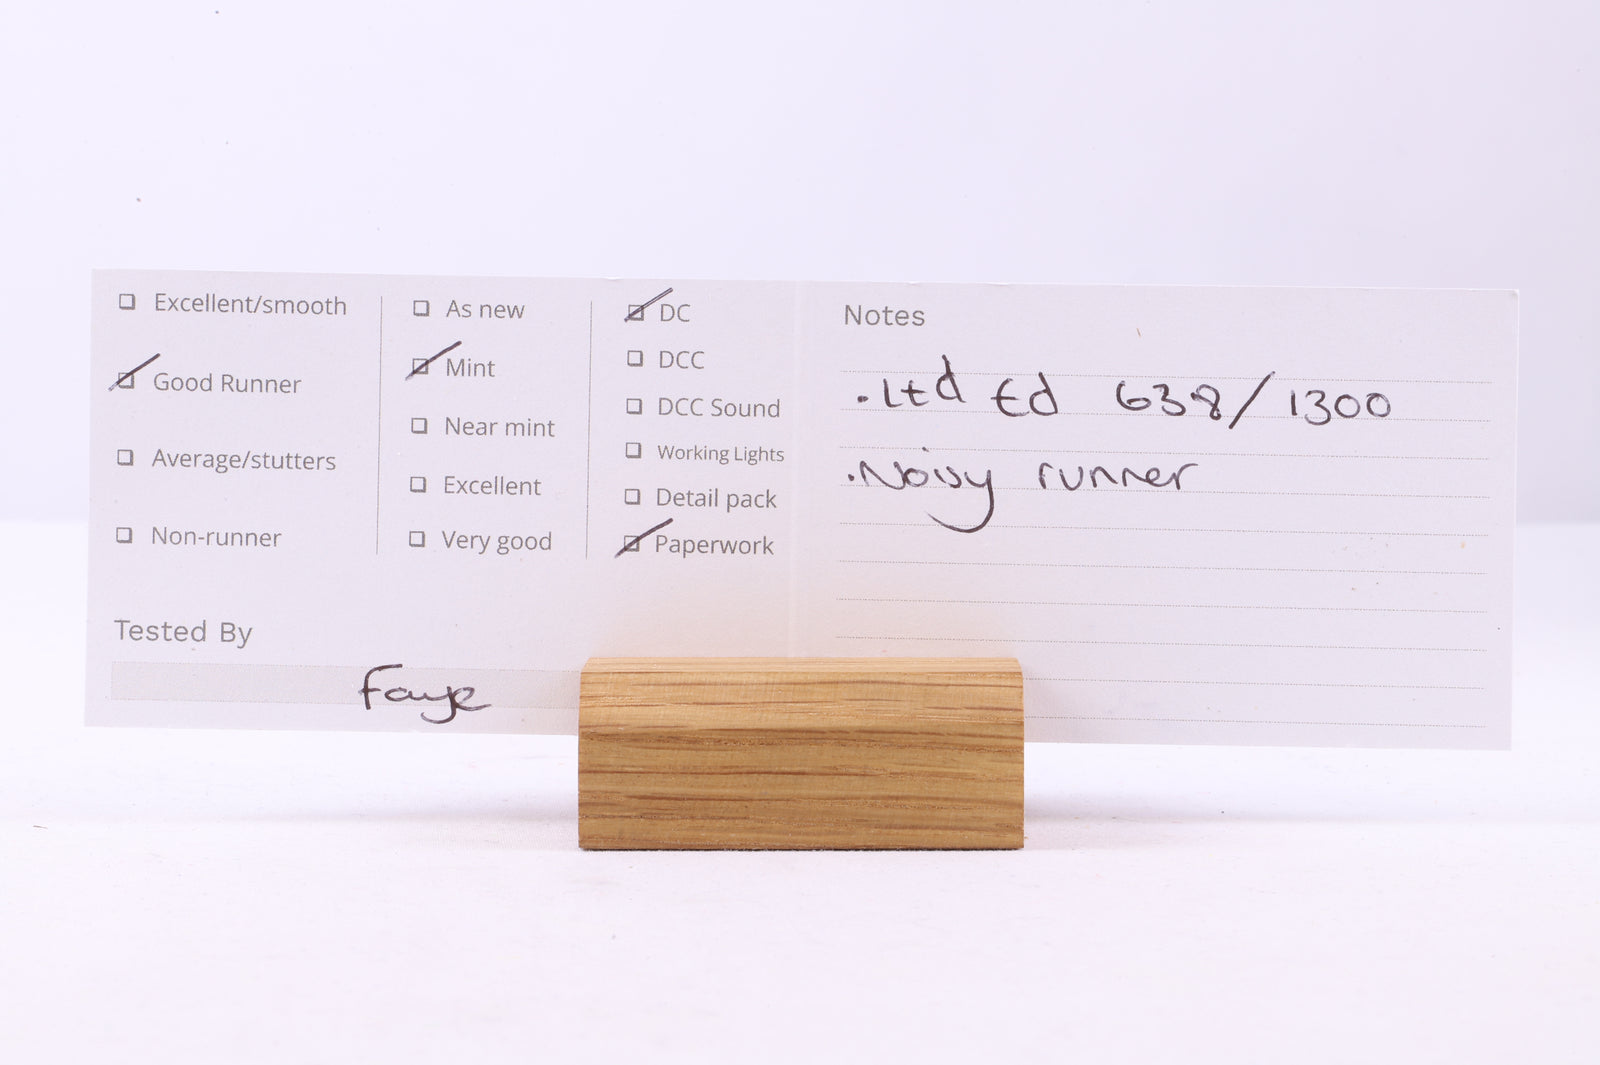 Excellent/smooth
Good Runner
Average/stutters
Non-runner
As new
Mint
Near mint
Excellent
Very good
DC
DCC
DCC Sound
Working Lights
Detail pack
Paperwork
Tested By
Faye
Notes
.Ltd Ed 638/1300
.Noisy runner